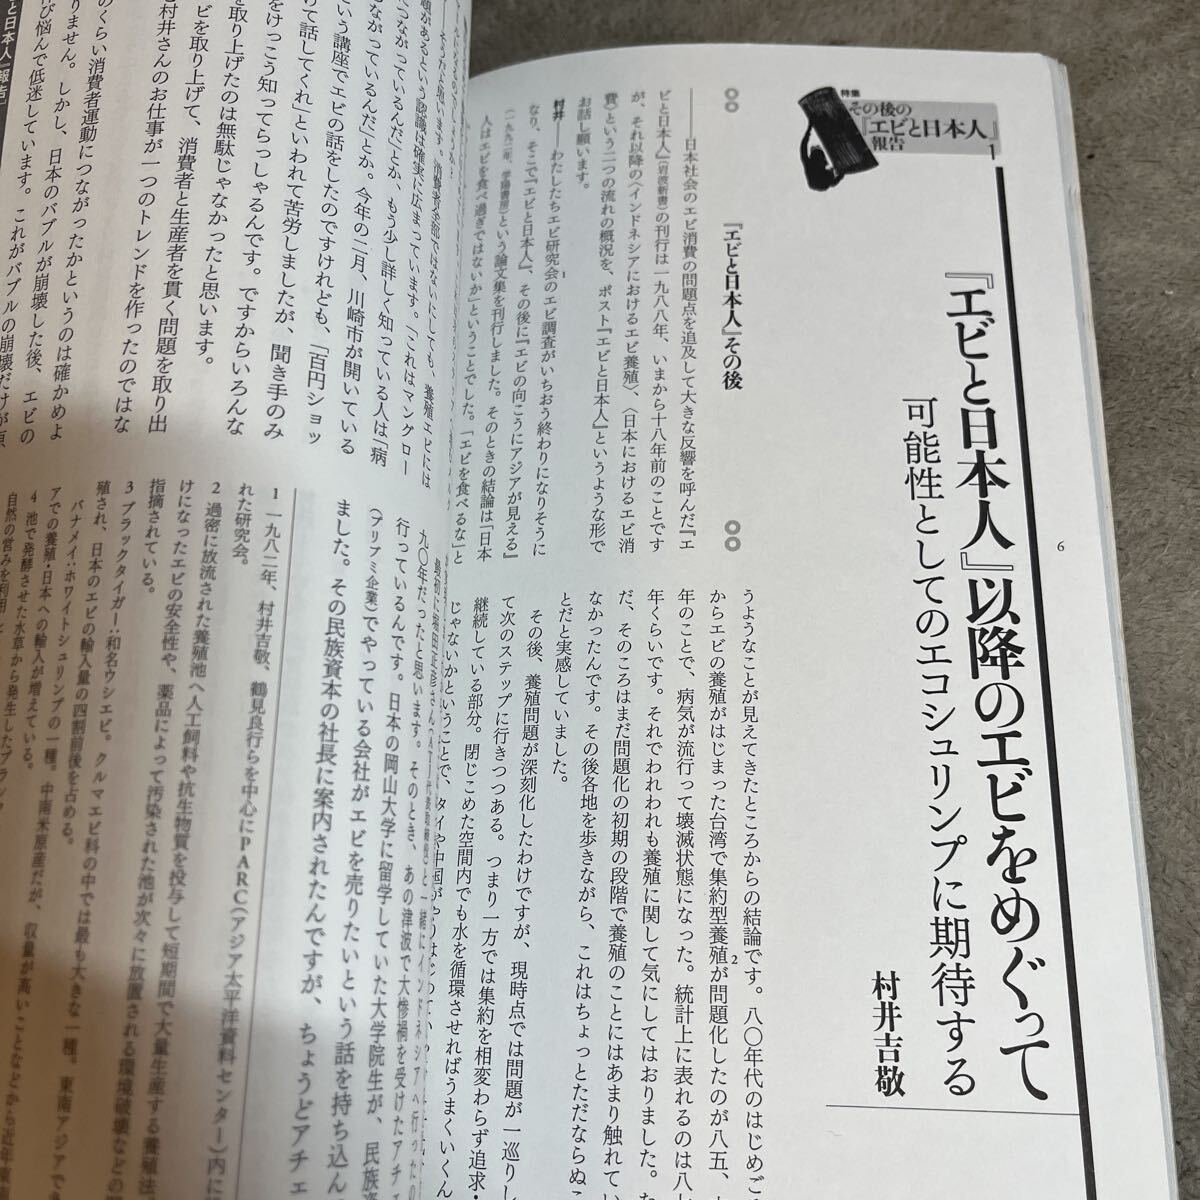 特集
その後の
『エビと日本人』
報告
1
『エビと日本人』以降のエビをめぐって
可能性としてのエコシュリンプに期待する
村井吉敬
6
『エビと日本人』その後
――日本社会のエビ消費の問題点を追及して大きな反響を呼んだ『エ
ビと日本人』(岩波新書)の刊行は一九八八年、いまから十八年前のことです
が、それ以降の〈インドネシアにおけるエビ養殖〉、〈日本におけるエビ消
費〉という二つの流れの概況を、ポスト『エビと日本人』というような形で
お話し願います。
村井――わたしたちエビ研究会1のエビ調査がいちおう終わりになりそうに
なり、そこで『エビと日本人』、その後に『エビの向こうにアジアが見える』
(一九九二年、学陽書房)という論文集を刊行しました。そのときの結論は「日本
人はエビを食べ過ぎではないか」ということでした。「エビを食べるな」と
うようなことが見えてきたところからの結論です。八〇年代のはじめご
からエビの養殖がはじまった台湾で集約型養殖2が問題化したのが八五、
年のことで、病気が流行って壊滅状態になった。統計上に表れるのは八七
年くらいです。それでわれわれも養殖に関して気にしてはおりました。
だ、そのころはまだ問題化の初期の段階で養殖のことにはあまり触れてい
なかったんです。その後各地を歩きながら、これはちょっとただならぬこ
とだと実感していました。
その後、養殖問題が深刻化したわけですが、現時点では問題が一巡りし
て次のステップに行きつつある。つまり一方では集約を相変わらず追求・
継続している部分。閉じこめた空間内でも水を循環させればうまくいくん
じゃないかということで、タイや中国がやりはじめて
題があるという認識は確実に広まっています。「これはマングロー
ながっているんだ」とか、もう少し詳しく知っている人は「病
つながっているんだ」とか。今年の二月、川崎市が開いている
いう講座でエビの話をしたのですけれども、「百円ショッ
けて話してくれ」といわれて苦労しましたが、聞き手のみ
をけっこう知ってらっしゃるんです。ですからいろんな
を取り上げたのは無駄じゃなかったと思います。
ビを取り上げて、消費者と生産者を貫く問題を取り出
村井さんのお仕事が一つのトレンドを作ったのではな
のくらい消費者運動につながったかというのは確かめよ
りません。しかし、日本のバブルが崩壊した後、エビの
び悩んで低迷しています。これがバブルの崩壊だけが原
と日本人』報告
九〇年だったと思います。そのとき、あの津波で大惨禍を受けたアチ
行っているんです。日本の岡山大学に留学していた大学院生が、民族資
(プリブミ企業)でやっている会社がエビを売りたいという話を持ち込ん
ました。その民族資本の社長に案内されたんですが、ちょうどアチェ
1 一九八二年、村井吉敬、鶴見良行らを中心にPARC(アジア太平洋資料センター)内に
れた研究会。
2 過密に放流された養殖池へ人工飼料や抗生物質を投与して短期間で大量生産する養殖法
けになったエビの安全性や、薬品によって汚染された池が次々に放置される環境破壊などの
指摘されている。
3 ブラックタイガー:和名ウシエビ。クルマエビ科の中では最も大きな一種。東南アジアで
殖され、日本のエビの輸入量の四割前後を占める。
バナメイ:ホワイトシュリンプの一種。中南米原産だが、収量が高いことなどから近年東
アでの養殖・日本への輸入が増えている。
4 池で発酵させた水草から発生したプランク
自然の営みを利用し